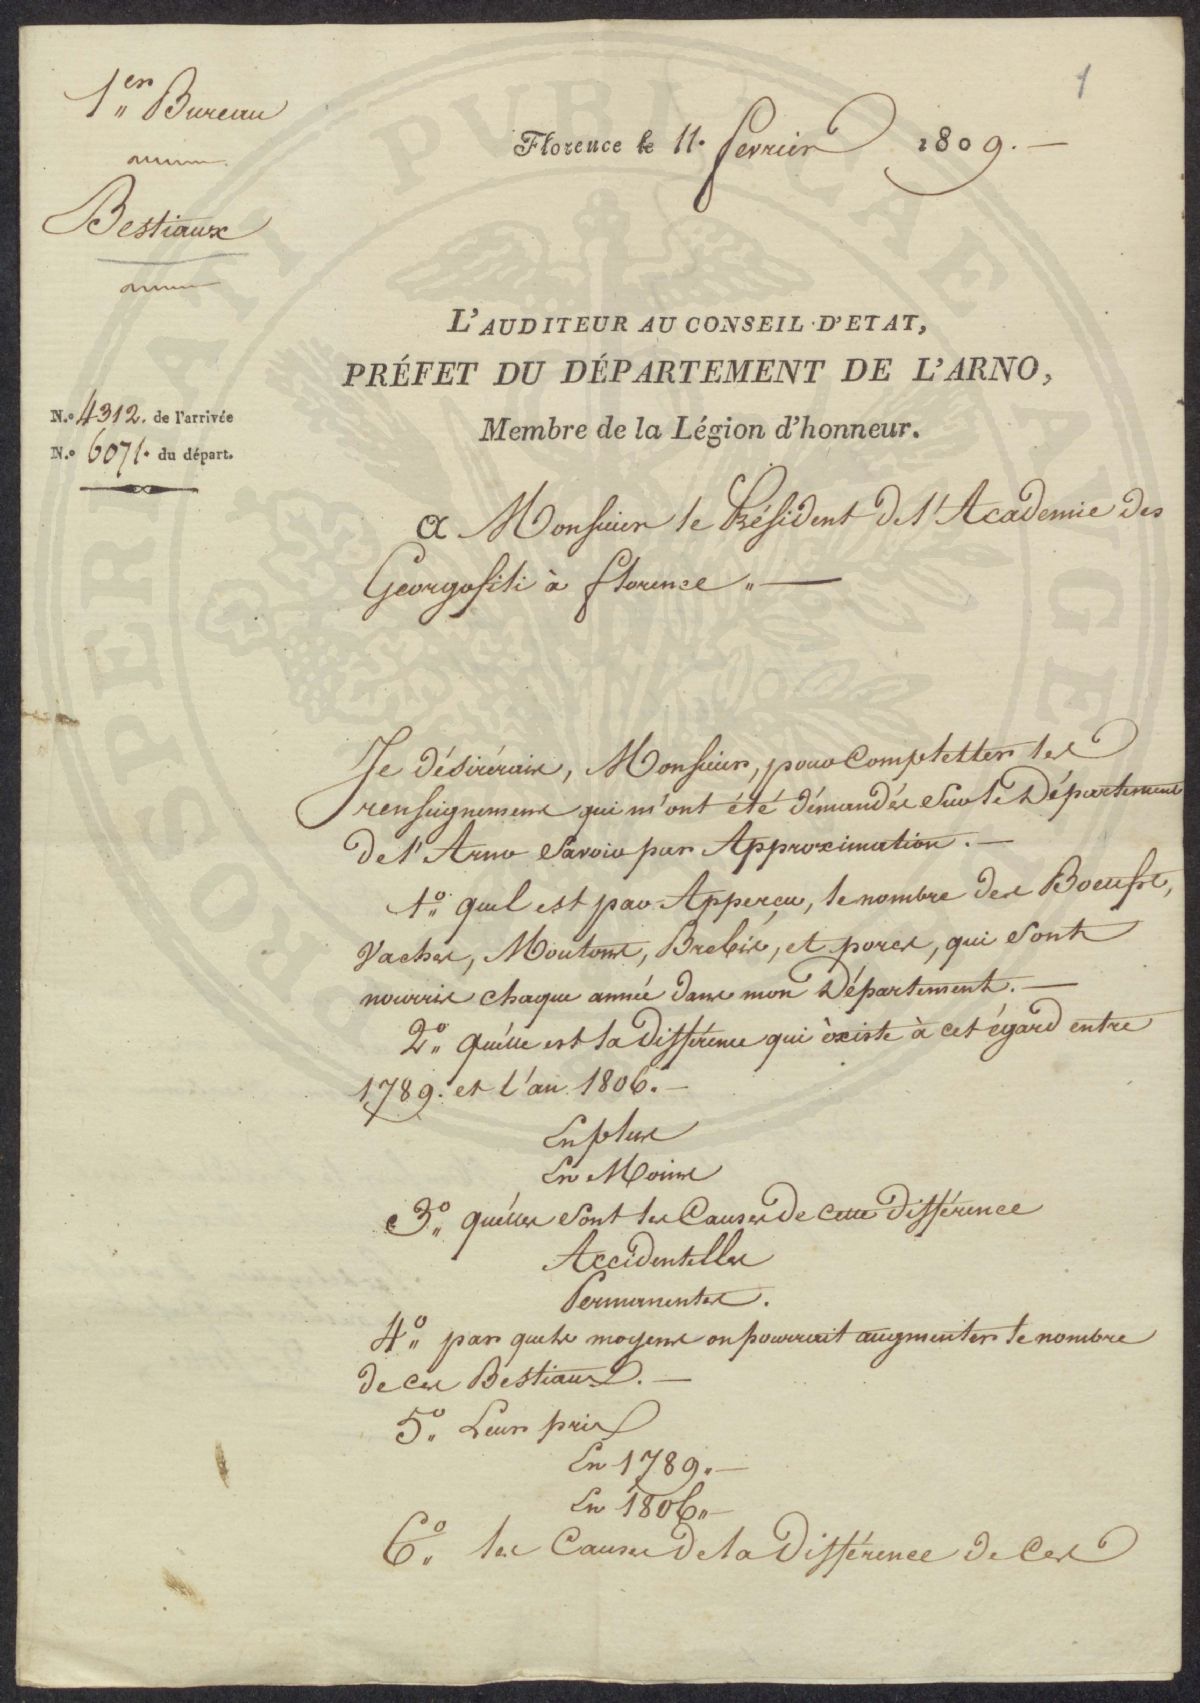 1
1er Bureau
Bestiaux
Florence le 11. fevrier 1809.
L'AUDITEUR AU CONSEIL D'ETAT,
PRÉFET DU DÉPARTEMENT DE L'ARNO,
Membre de la Légion d'honneur.
N.º 4312. de l'arrivée
N.º 6071. du départ.
a Monsieur le Président de l'Academie des
Georgofili à florence
Je désirérais, Monsieur, pour Completter les
renseignemens qui m'ont été démandés Sur le Département
de l'Arno Savoir par Approximation.
1º quel est par Apperçu, le nombre des Boeufs,
Vaches, Moutons, Brebis, et porcs, qui Sont
nourris chaque année dans mon Département.
2º quélle est la différence qui èxiste à cet égard entre
1789. et l'an 1806.
En plus
En Moins
3º quélles Sont les Causes de cette différence
Accidentelles
Permanentes.
4º par quels moyens on pourrait augmenter le nombre
de ces Bestiaux.
5º Leur prix
En 1789.
En 1806.
6º les Causes de la Différence de Ces
PROSPERITATI PUBLICAE AUGENDAE